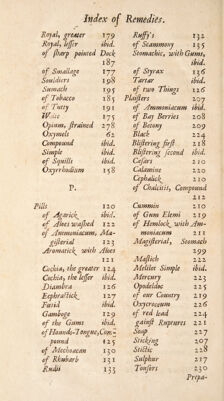 Index of Remedies.
Royal, greater 179
Royal, lesser ibid.
of sharp pointed Dock 187
of Smallage 177
Souldiers 198
Sumach 195
of Tobacco 185
of Tutty 191
Wine 175
Opium, strained 278
Oxymels 62
Compound ibid.
Simple ibid.
of Squills ibid.
Oxyrhodium 158
P.
Pills 120
of Agarick ibid.
of Aloes washed 122
of Ammoniacum, Magisterial 123
Aromatick with Aloes 121
Cochia, the greater 124
Cochia, the lesser ibid.
Diambra 126
Ephractick 127
Fœtid ibid.
Gamboge 129
of the Gums ibid.
of Hounds-Tongue, Compound 125
of Mechoacan 130
of Rhubarb 131
Rudii 133
Ruffy's 132
of Scammony 135
Stomachic, with Gums, ibid.
of Styrax 136
Tartar ibid.
of two Things 126
Plaisters 207
of Ammoniacum ibid.
of Bay Berries 208
of Betony 209
Black 224
Blistering first 218
Blistering second ibid.
Cæsars 210
Calamine 220
Cephalick 210
of Chalcitis, Compound 212
Cummin 210
of Gum Elemi 219
of Hemlock with Ammoniacum 211
Magisterial, Stomach 299
Mastich 222
Melilot Simple ibid.
Mercury 223
Opodeldoc 225
of our Country 219
Oxycroceum 226
of red lead 224
against Ruptures 221
Soap 227
Sticking 207
Stictic 228
Sulphur 217
Tonsers 230
Prepa-